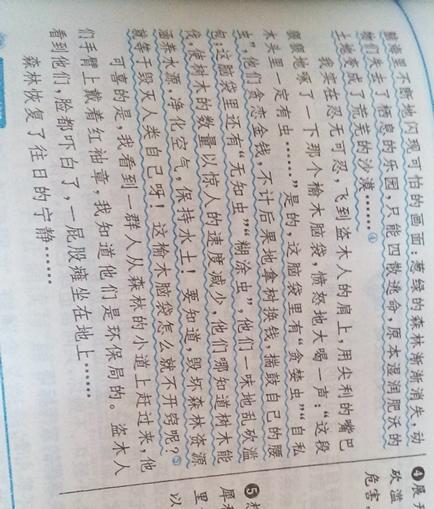 脑海里不断地闪现可怕的画面:葱绿的森林渐渐消失,动
物们失去了栖息的乐园,只能四散逃命,原本湿润肥沃的
土地变成了荒芜的沙漠……④
我实在忍无可忍,飞到盗木人的肩上,用尖利的嘴巴
狠狠地啄了一下那个榆木脑袋,愤怒地大喝一声:“这段
木头里一定有虫……”是的,这脑袋里有“贪婪虫”“自私
虫”,他们贪恋金钱,不计后果地拿树换钱,揣鼓自己的腰
包;这脑袋里还有“无知虫”“糊涂虫”,他们一味地乱砍滥
伐,使树木的数量以惊人的速度减少,他们哪知道树木能
涵养水源,净化空气,保持水土!要知道,毁坏森林资源
就等于毁灭人类自己呀!这榆木脑袋怎么就不开窍呢?⑤
可喜的是,我看到一群人从森林的小道上赶过来,他
们手臂上戴着红袖章,我知道他们是环保局的。盗木人
看到他们,脸都吓白了,一屁股瘫坐在地上……
森林恢复了往日的宁静……
❹展开
砍滥
危害,
❺
犀
里
以